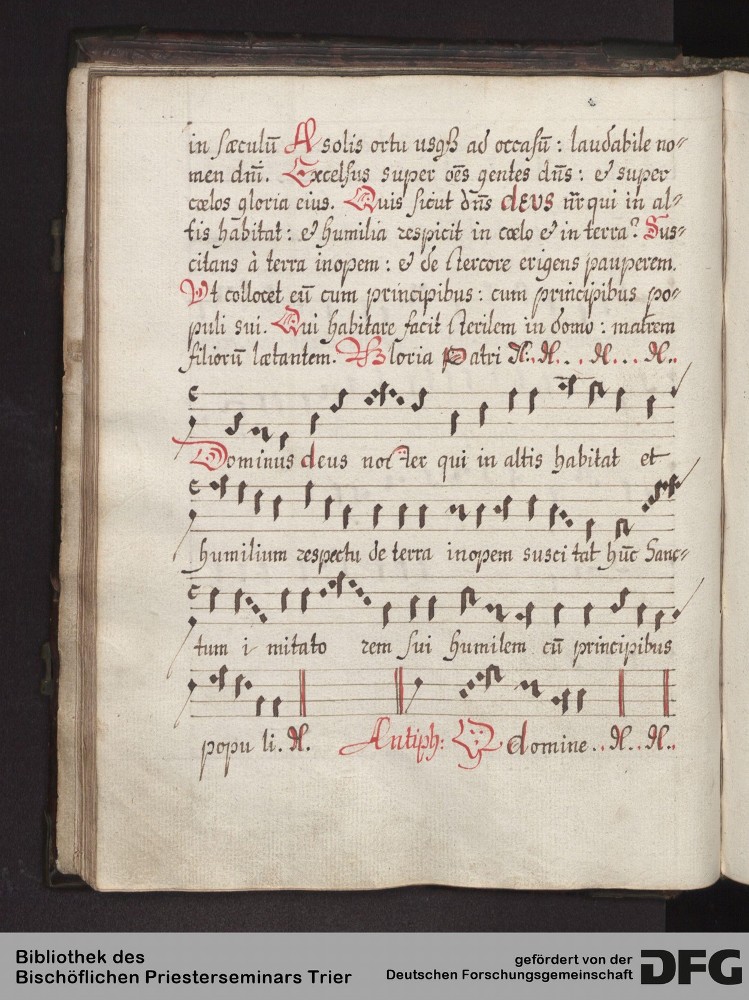 in sæculũ A solis ortu usq̃ ad occasũ: laudabile no=
men dñi. Excelsus super oẽs gentes dñs: & super
cœlos gloria eius. Quis sicut dñs deus nr̃ qui in al=
tis habitat: & humilia respicit in cœlo & in terra? Sus=
citans à terra inopem: & de stercore erigens pauperem.
Vt collocet eũ cum principibus: cum principibus po=
puli sui. Qui habitare facit sterilem in domo: matrem
filiorũ lætantem. Gloria Patri
Dominus deus noster qui in altis habitat et
humilium respectu de terra inopem suscitat hũc Sanc=
tum i mitato rem sui humilem cũ principibus
popu li. Antiph: domine
Bibliothek des
Bischöflichen Priesterseminars Trier
gefördert von der
Deutschen Forschungsgemeinschaft DFG